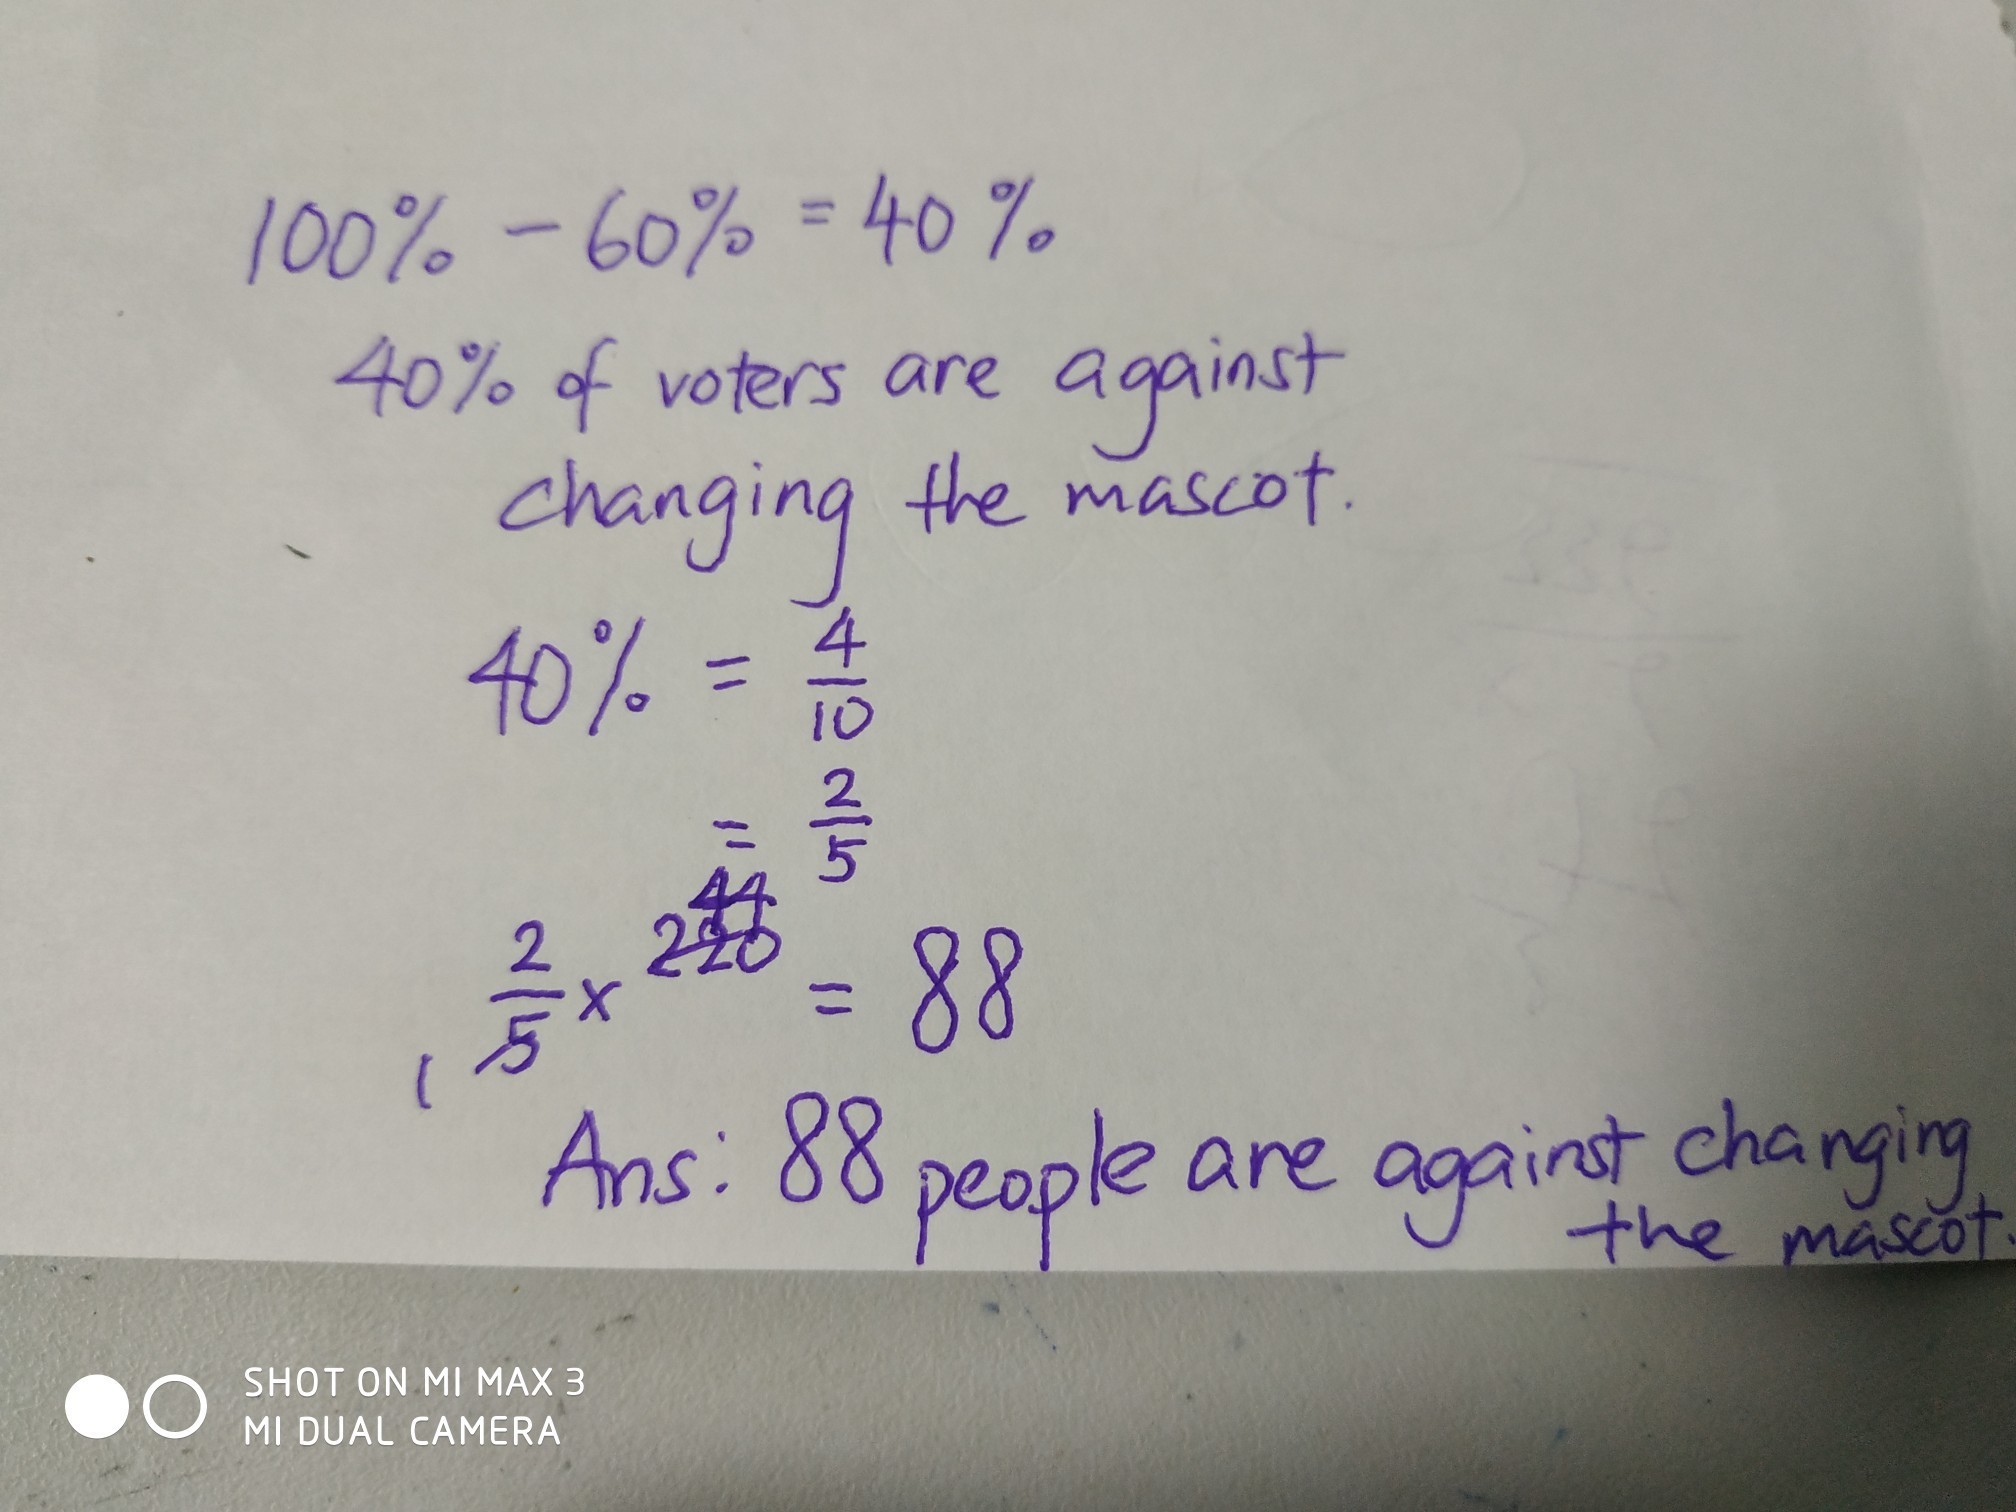 100% - 60% = 40%
40% of voters are against
changing the mascot.
40% = 4/10
= 2/5
44
2/5 x 220 = 88
1
Ans: 88 people are against changing
the mascot.
SHOT ON MI MAX 3
MI DUAL CAMERA